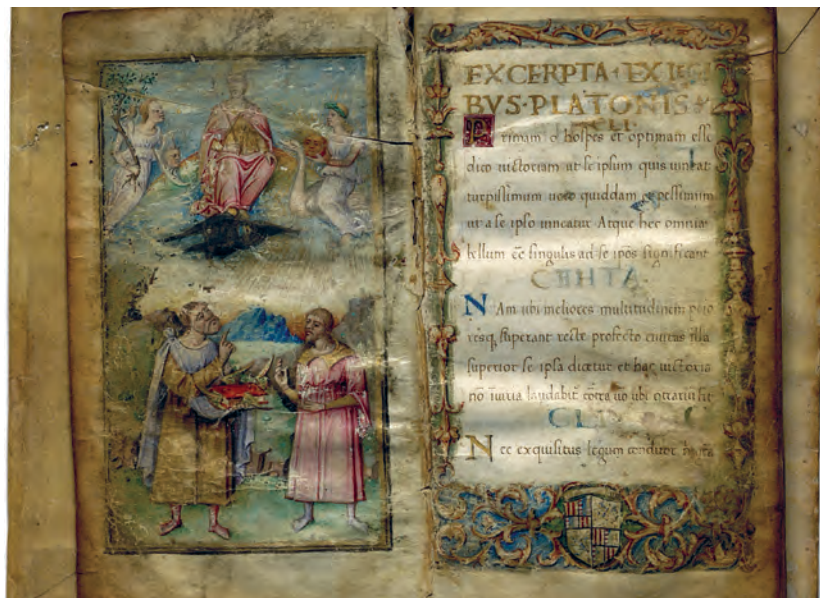 EXCERPTA · EX LEGI
BVS · PLATONIS
CLI
Primam o hospes et optimam esse
dico uictoriam ut se ipsum quis uincat
turpissimum uero quiddam et pessimum
ut a se ipso uincatur Atque hec omnia
bellum eē singulis ad se ipōs significant
Nam ubi meliores multitudinem peio
resq, superant recte profecto ciuitas illa
superior se ipsa dicetur et hac uictoria
nō iniuria laudabit
Nec exquisitus legum conditor